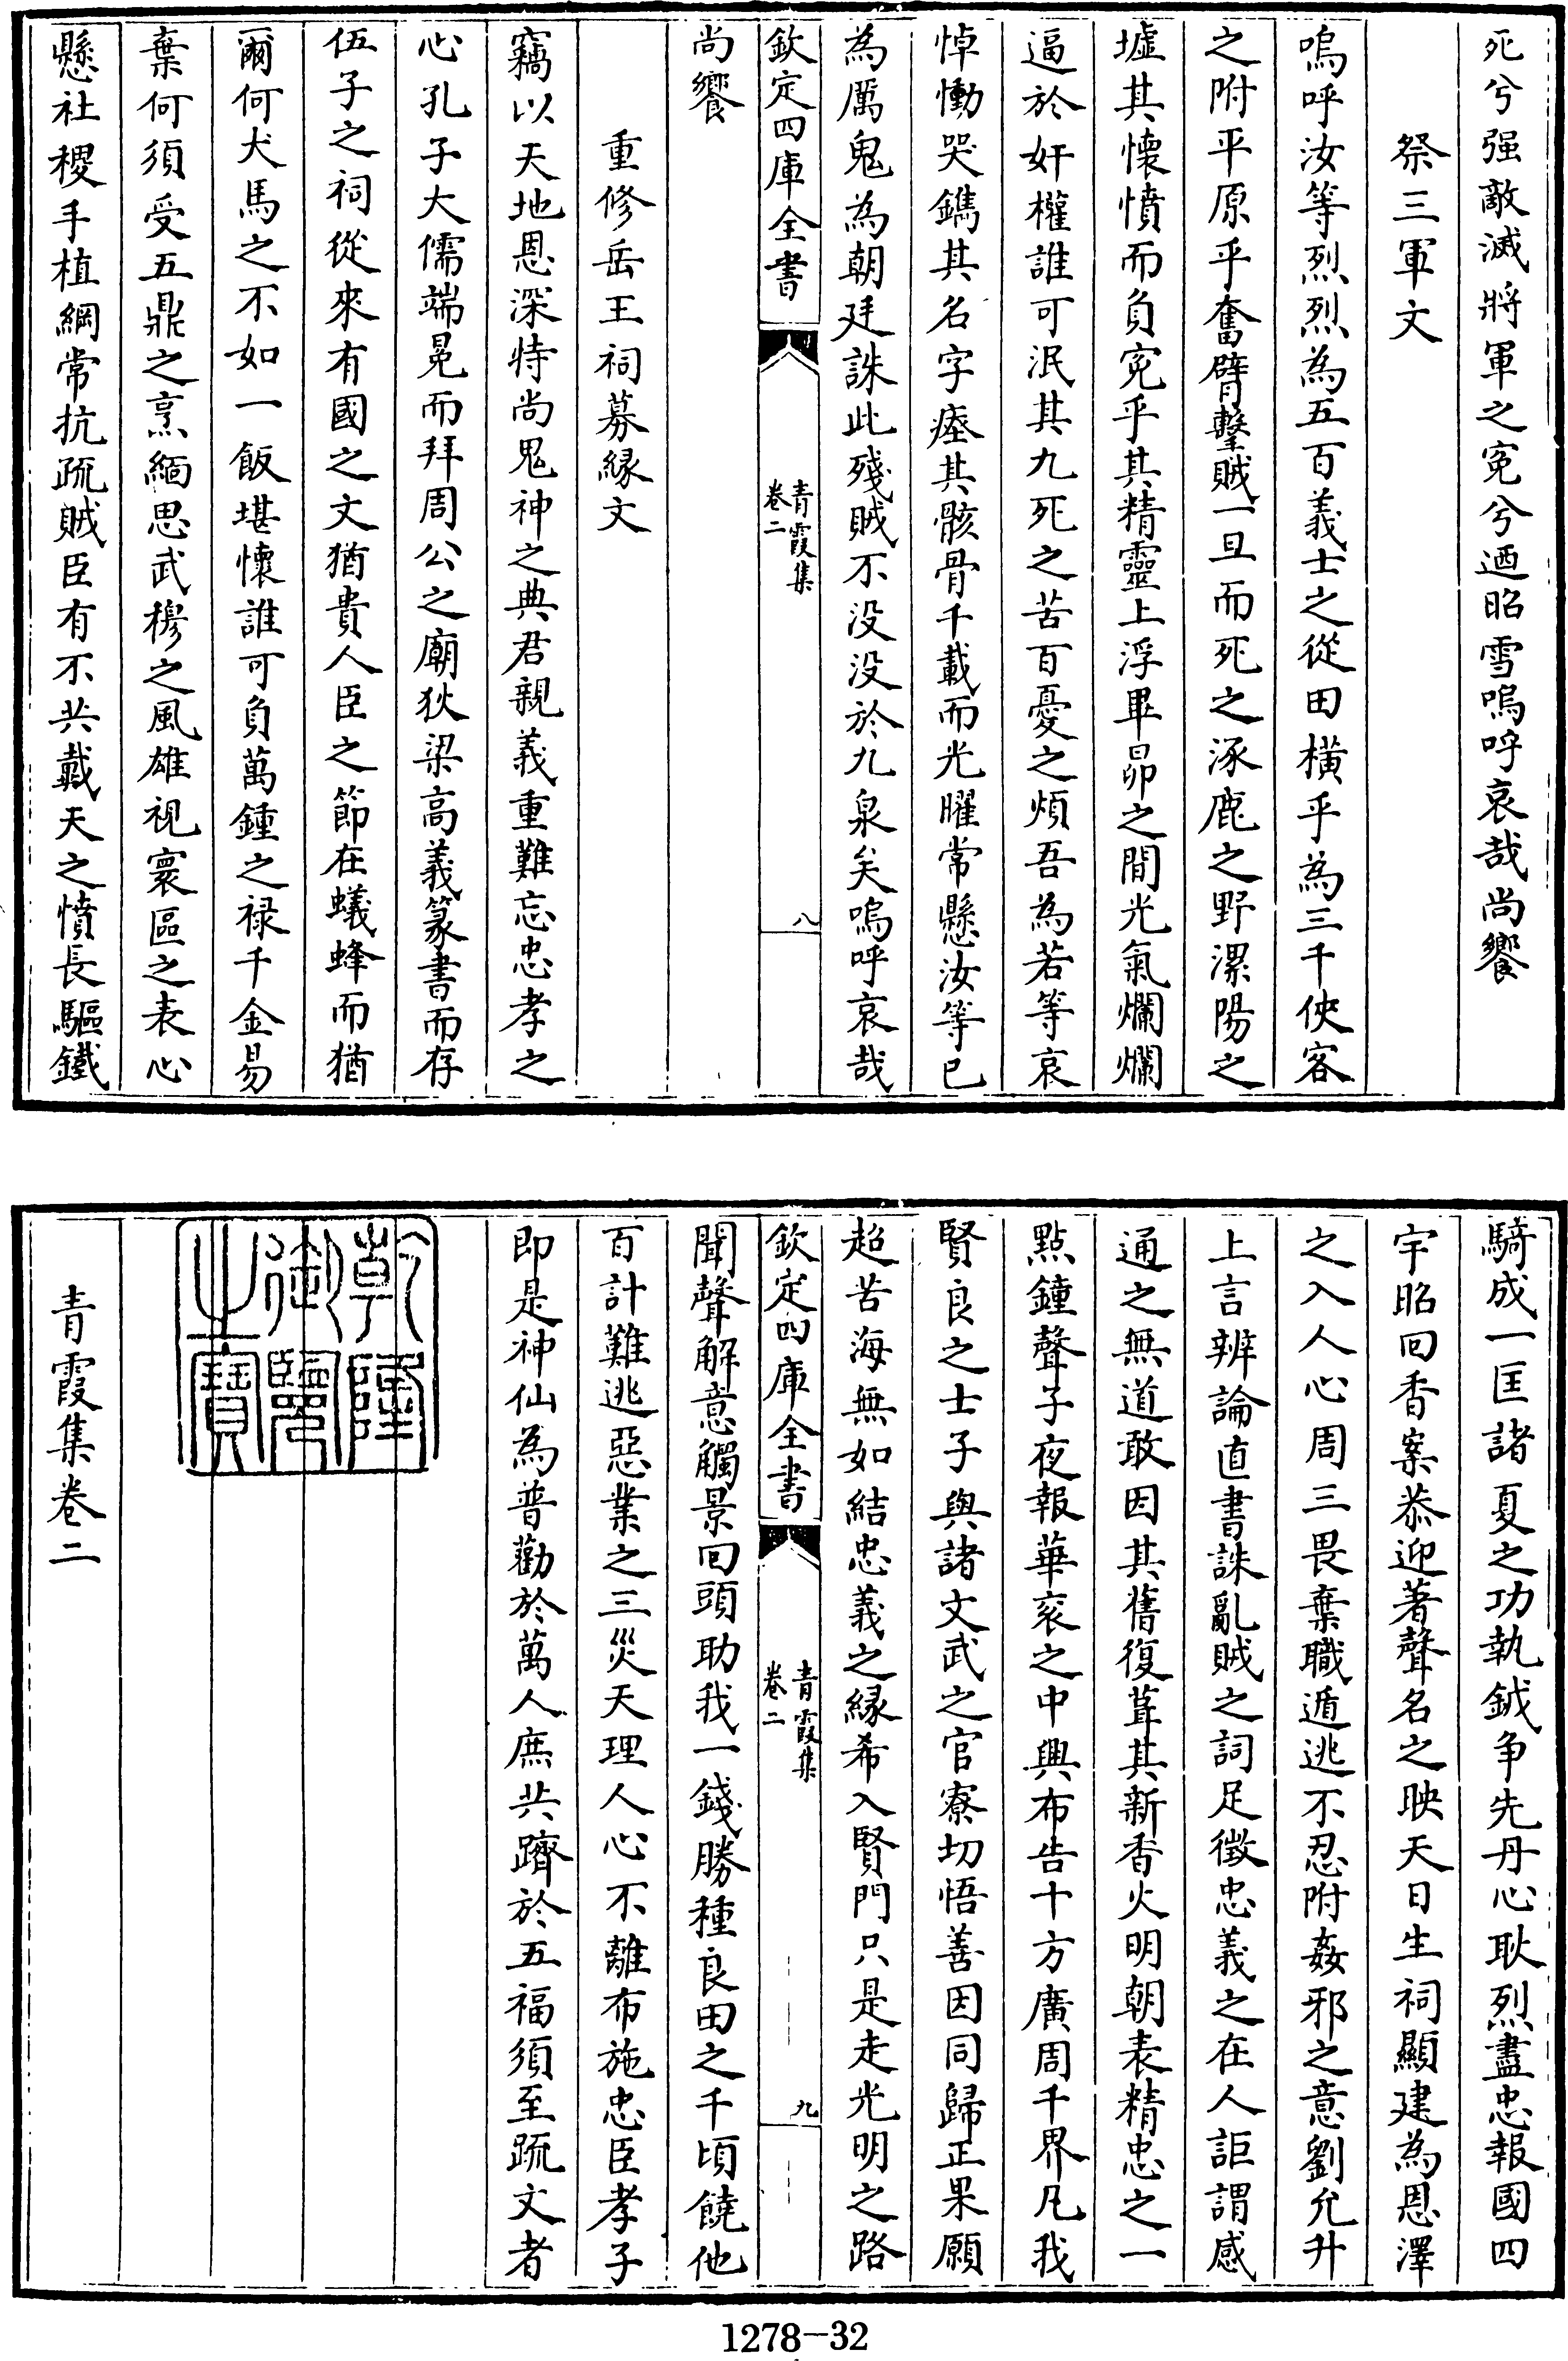 死兮强敵滅將軍之寃兮迺昭雪嗚呼哀哉尚饗
祭三軍文
嗚呼汝等烈烈為五百義士之從田橫乎為三千俠客
之附平原乎奮臂擊賊一旦而死之涿鹿之野漯陽之
墟其懷憤而負寃乎其精靈上浮畢昴之間光氣爛爛
逼於奸權誰可泯其九死之苦百憂之煩吾為若等哀
悼慟哭鐫其名字瘞其骸骨千載而光曜常懸汝等已
為厲鬼為朝廷誅此殘賊不没没於九泉矣嗚呼哀哉
欽定四庫全書
青霞集
卷二
八
尚饗
重修岳王祠募緣文
竊以天地恩深恃尚鬼神之典君親義重難忘忠孝之
心孔子大儒端冕而拜周公之廟狄梁高義篆書而存
伍子之祠從來有國之文猶貴人臣之節在蟻蜂而猶
爾何犬馬之不如一飯堪懷誰可負萬鍾之禄千金易
棄何須受五鼎之烹緬思武穆之風雄視寰區之表心
懸社稷手植綱常抗疏賊臣有不共戴天之憤長驅鐵
騎成一匡諸夏之功執鉞争先丹心耿烈盡忠報國四
宇昭回香案恭迎著聲名之映天日生祠顯建為恩澤
之入人心周三畏棄職遁逃不忍附姦邪之意劉允升
上言辨論直書誅亂賊之詞足徵忠義之在人詎謂感
通之無道敢因其舊復葺其新香火明朝表精忠之一
點鐘聲子夜報華衮之中興布告十方廣周千界凡我
賢良之士子與諸文武之官寮切悟善因同歸正果願
超苦海無如結忠義之緣希入賢門只是走光明之路
欽定四庫全書
青霞集
卷二
九
聞聲解意觸景回頭助我一錢勝種良田之千頃饒他
百計難逃惡業之三災天理人心不離布施忠臣孝子
即是神仙為普勸於萬人庶共躋於五福須至疏文者
乾隆
御覽
之寶
青霞集卷二
1278-32